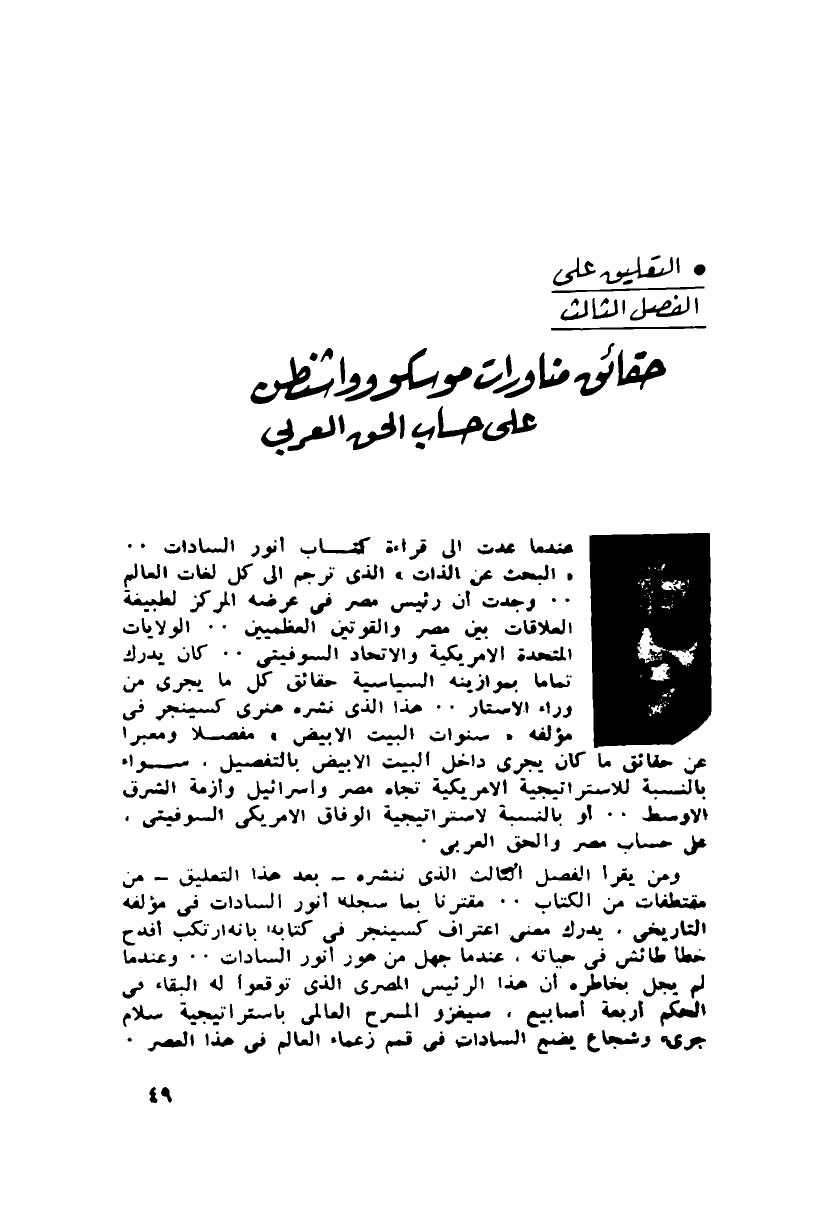 • التعليق على
الفصل الثالث
حقائق مناورات موسكو وواشنطن
على حساب الحق العربي
عندما عدت الى قراءة كتـــاب أنور السادات ٠٠
« البحث عن الذات » الذى ترجم الى كل لغات العالم
٠٠ وجدت أن رئيس مصر فى عرضه المركز لطبيعة
العلاقات بين مصر والقوتين العظميين ٠٠ الولايات
المتحدة الامريكية والاتحاد السوفيتى ٠٠ كان يدرك
تماما بموازينه السياسية حقائق كل ما يجرى من
وراء الاستار ٠٠ هذا الذى نشره هنرى كسينجر فى
مؤلفه « سنوات البيت الابيض » مفصـــلا ومعبرا
عن حقائق ما كان يجرى داخل البيت الابيض بالتفصيل ، ســـواء
بالنسبة للاستراتيجية الامريكية تجاه مصر واسرائيل وأزمة الشرق
الاوسط ٠٠ أو بالنسبة لاستراتيجية الوفاق الامريكى السوفيتى ،
على حساب مصر والحق العربى ٠
ومن يقرأ الفصل الثالث الذى ننشره ــ بعد هذا التعليق ــ من
مقتطفات من الكتاب ٠٠ مقترنا بما سجله أنور السادات فى مؤلفه
التاريخى ، يدرك معنى اعتراف كسينجر فى كتابه بانه ارتكب أفدح
خطأ طائش فى حياته ، عندما جهل من هو أنور السادات ٠٠ وعندما
لم يجل بخاطره أن هذا الرئيس المصرى الذى توقعوا له البقاء فى
الحكم أربعة أسابيع ، سيغزو المسرح العالمى باستراتيجية سلام
جرىء وشجاع يضع السادات فى قمم زعماء العالم فى هذا العصر ٠
٤٩